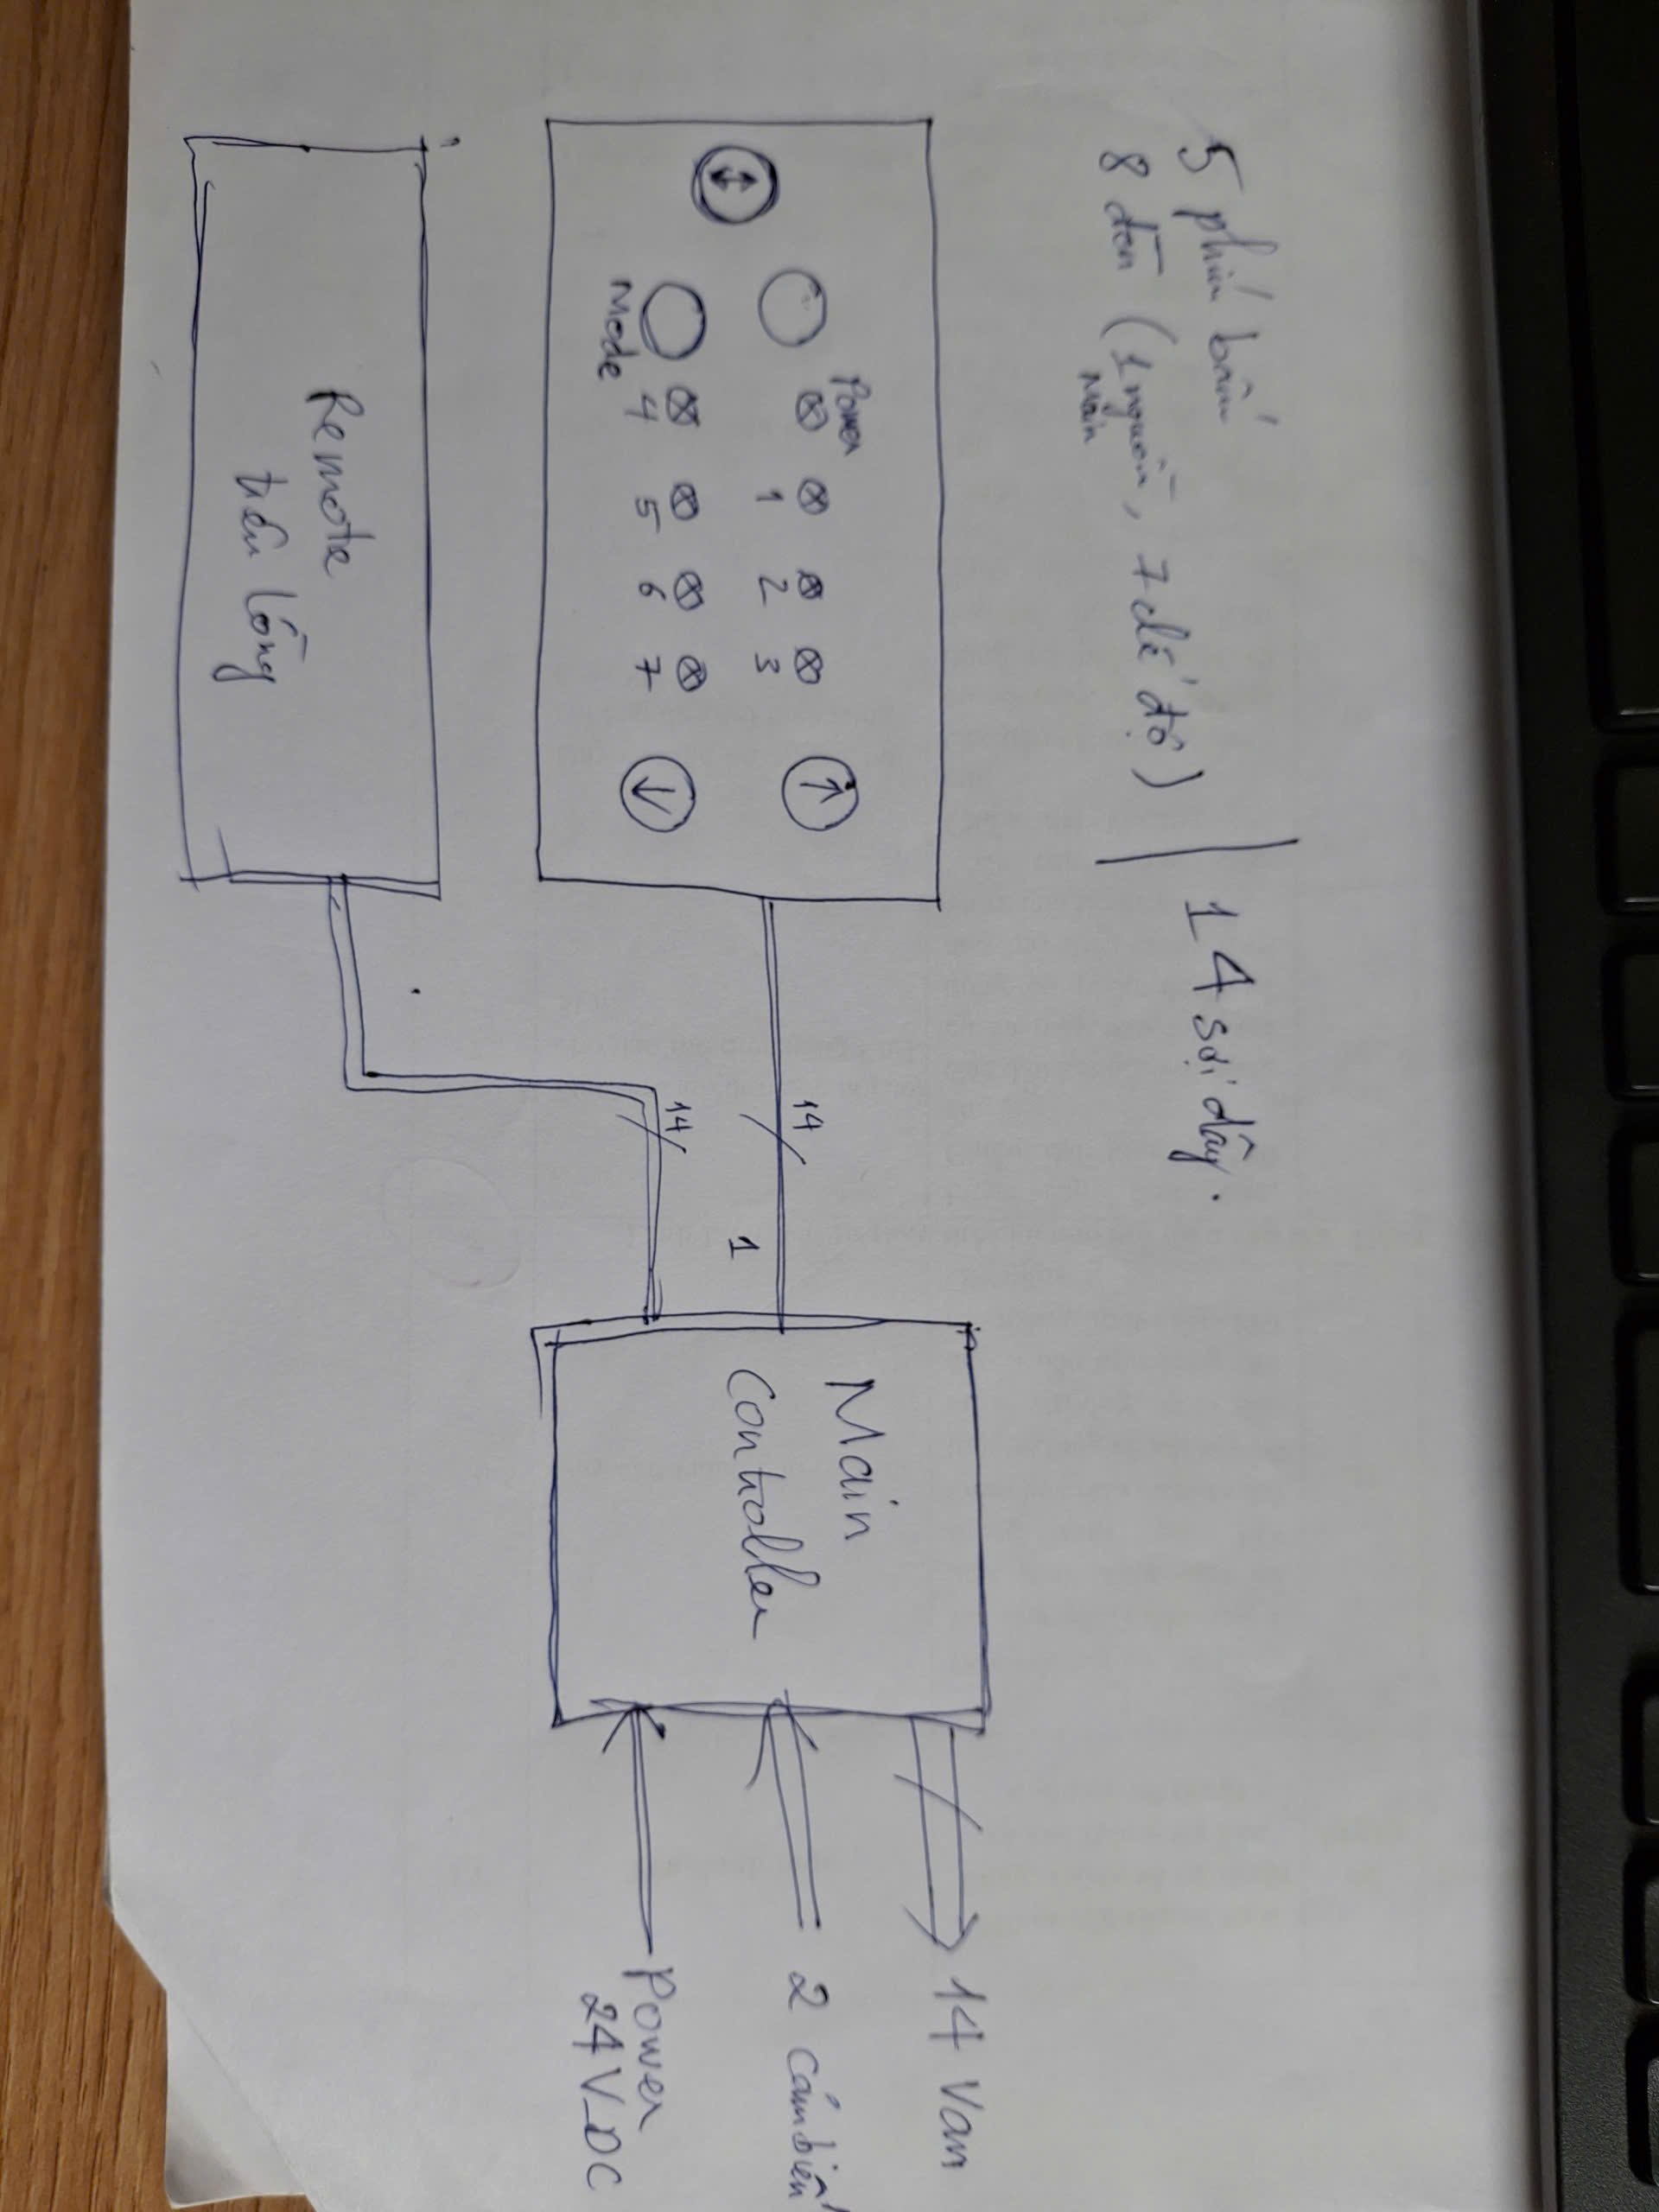 5 phím bấm
8 đèn (1 nguồn, 7 chế độ)
Main
14 sợi dây.
Power
1 2 3
4 5 6 7
Mode
14
1
14
Main
Controller
14 Van
2 cảm biến
Power
24 V_DC
Remote